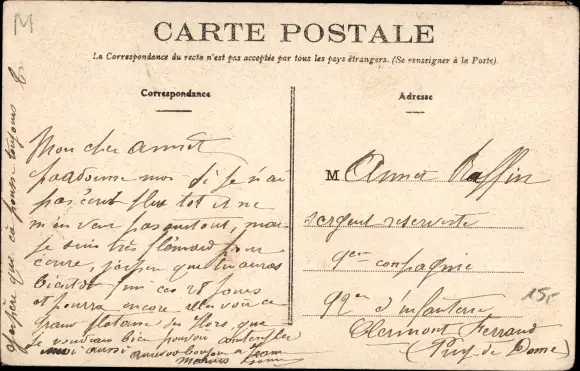 M
CARTE POSTALE
La Correspondance du recto n'est pas acceptée par tous les pays étrangers. (Se renseigner à la Poste).
Correspondance
Mon cher Annet
pardonne moi si je n'ai
pas écrit plus tot et ne
m'en veux pas surtout, mais
je suis très flémard pour
écrire, j'espère que tu auras
bientôt fini ces 28 jours
et pourra encore aller voir ce
grand des flots, que
je voudrais bien pouvoir contempler
moi aussi
Marius
j'espère que ça pousse toujours
Adresse
M Annet Raffin
sergent réserviste
9em compagnie
92em d'infanterie
Clermont Ferrand
(Puy de Dome)
15f